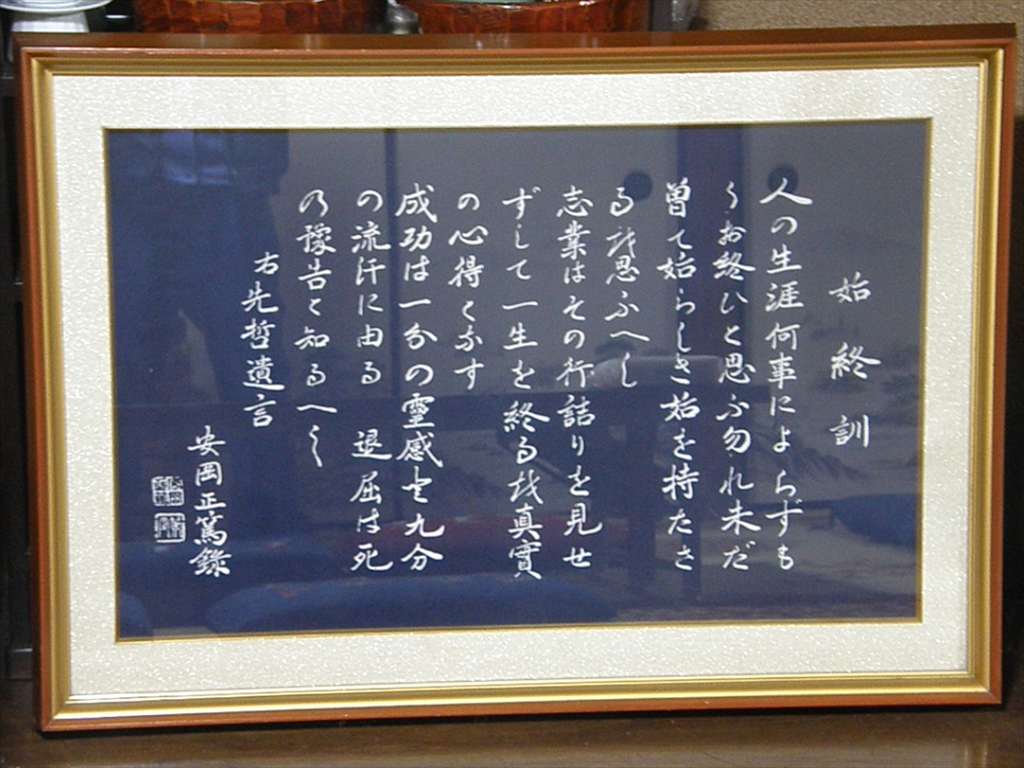 始終訓
人の生涯何事によらずも
うお終ひと思ふ勿れ未だ
曽て始らしき始を持たさ
る越思ふへし
志業はその行詰りを見せ
ずして一生を終る越真實
の心得となす
成功は一分の霊感と九分
の流汗に由る 退屈は死
の豫告と知るへし
右先哲遺言
安岡正篤録